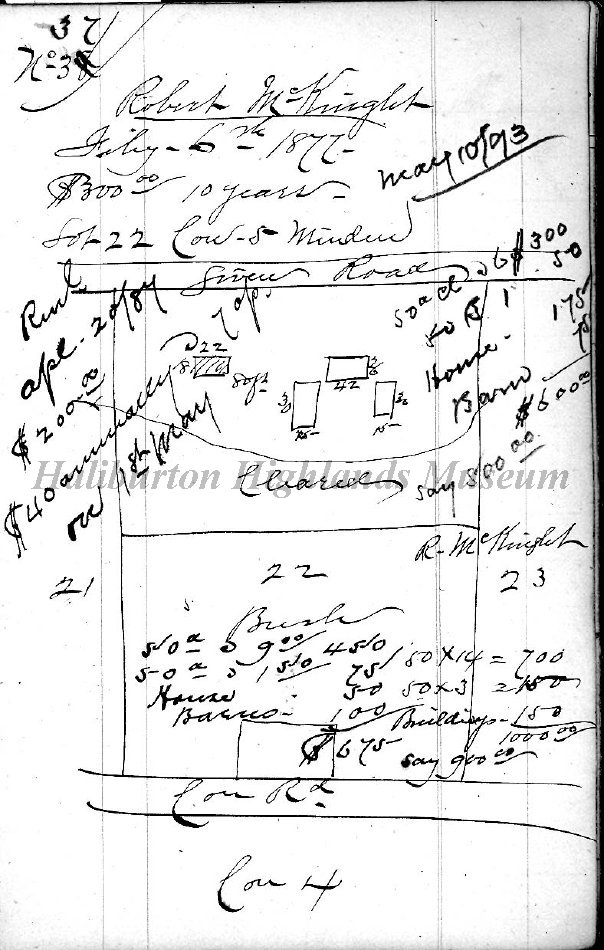 37
No 38
Robert McKnight
Feby - 6th 1877 -
$300 00 10 years -
May 10/93
Lot 22 Con - 5 Minden
Road
Apl. 20/87
$200.00
$40 annually
on 1st May
50 a @ 6 $300
50 @ 1 . 50
House - 175
Barn 75
$600 00
22
80 ft
42
30
15
30
15
Haliburton Highlands Museum
Cleared
say 800 00
R - McKnight
21
22
23
Bush
50 a @ 9 00 450
50 a @ 1 50 75
House 50
Barns - 100
$675
50 x 14 = 700
50 x 3 = 150
Buildings - 150
1000 00
say 900 00
Con Rd
Con 4